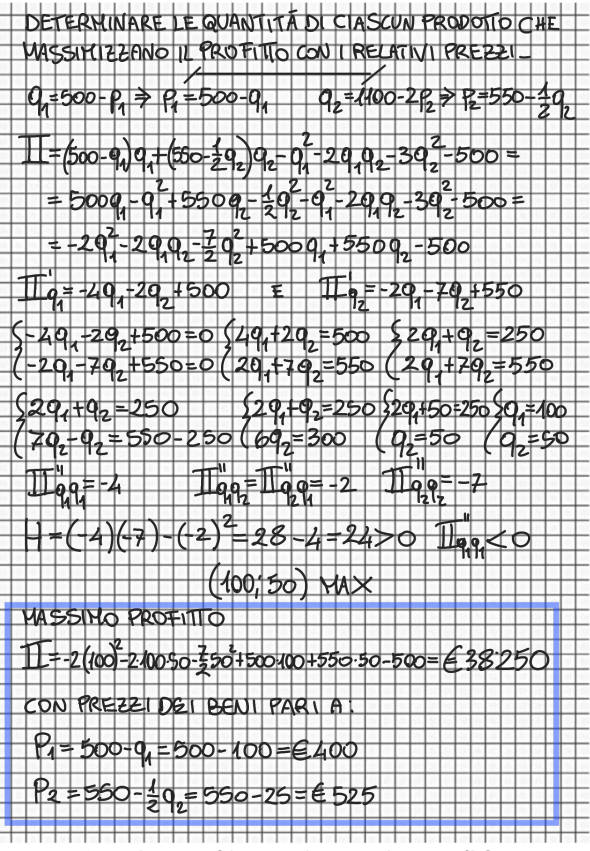 DETERMINARE LE QUANTITÀ DI CIASCUN PRODOTTO CHE
MASSIMIZZANO IL PROFITTO CON I RELATIVI PREZZI_
q₁=500-p₁ ⇒ p₁=500-q₁ q₂=1100-2p₂ ⇒ p₂=550-½q₂
Π=(500-q₁)q₁+(550-½q₂)q₂-q₁²-2q₁q₂-3q₂²-500=
=500q₁-q₁²+550q₂-½q₂²-q₁²-2q₁q₂-3q₂²-500=
=-2q₁²-2q₁q₂-7/2q₂²+500q₁+550q₂-500
Π'q₁=-4q₁-2q₂+500 E Π'q₂=-2q₁-7q₂+550
{-4q₁-2q₂+500=0 {4q₁+2q₂=500 {2q₁+q₂=250
{-2q₁-7q₂+550=0 {2q₁+7q₂=550 {2q₁+7q₂=550
{2q₁+q₂=250 {2q₁+q₂=250 {2q₁+50=250 {q₁=100
{7q₂-q₂=550-250 {6q₂=300 {q₂=50 {q₂=50
Π''q₁q₁=-4 Π''q₁q₂=Π''q₂q₁=-2 Π''q₂q₂=-7
H=(-4)(-7)-(-2)²=28-4=24>0 Π''q₁q₁<0
(100;50) MAX
MASSIMO PROFITTO
Π=-2(100)²-2·100·50-7/2·50²+500·100+550·50-500=€38'250
CON PREZZI DEI BENI PARI A:
P₁=500-q₁=500-100=€400
P₂=550-½q₂=550-25=€525